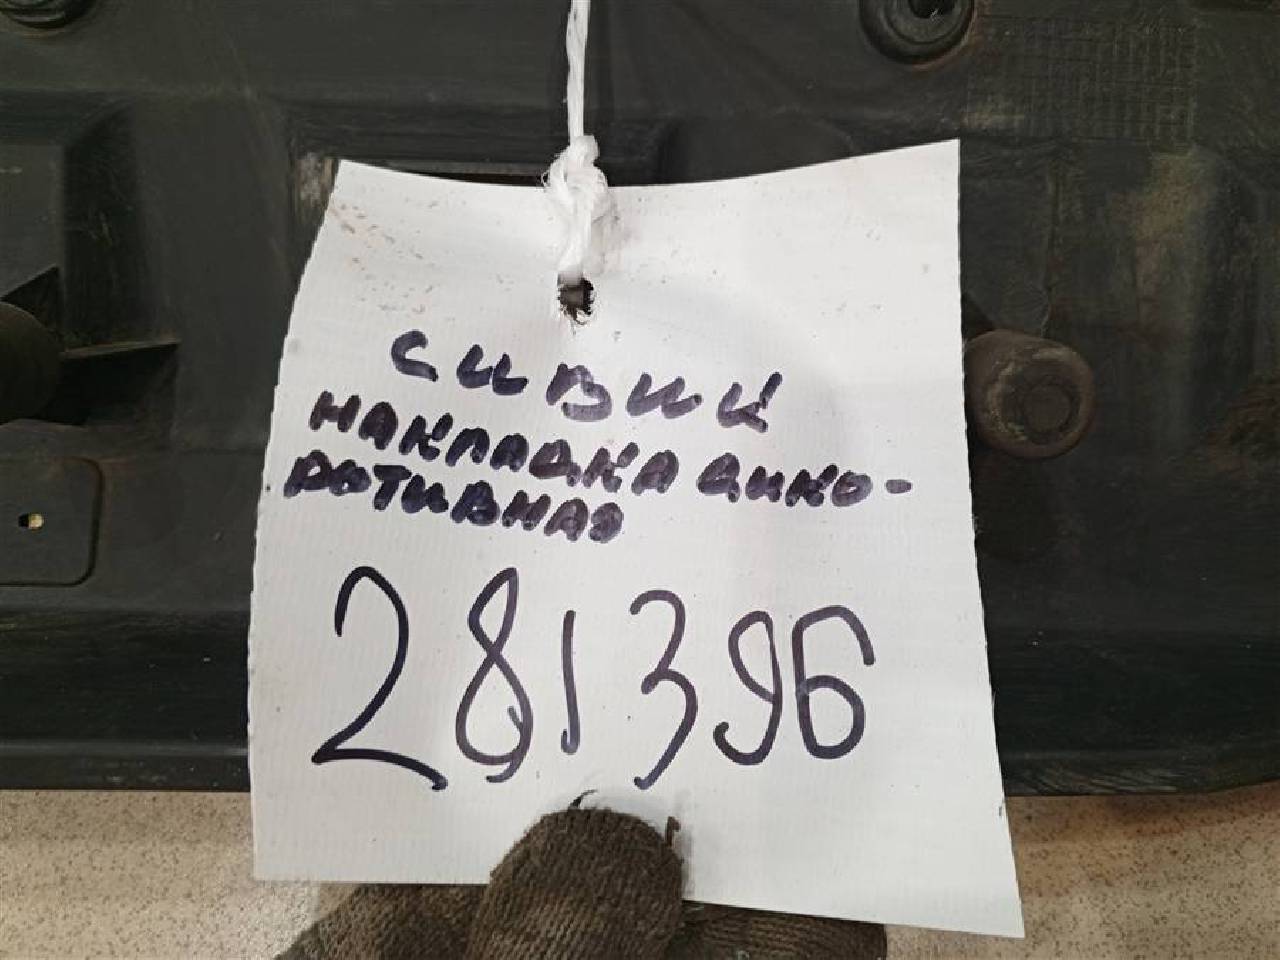 СИВИК
НАКЛАДКА ДИКО-
РОТИВНАЯ
281396